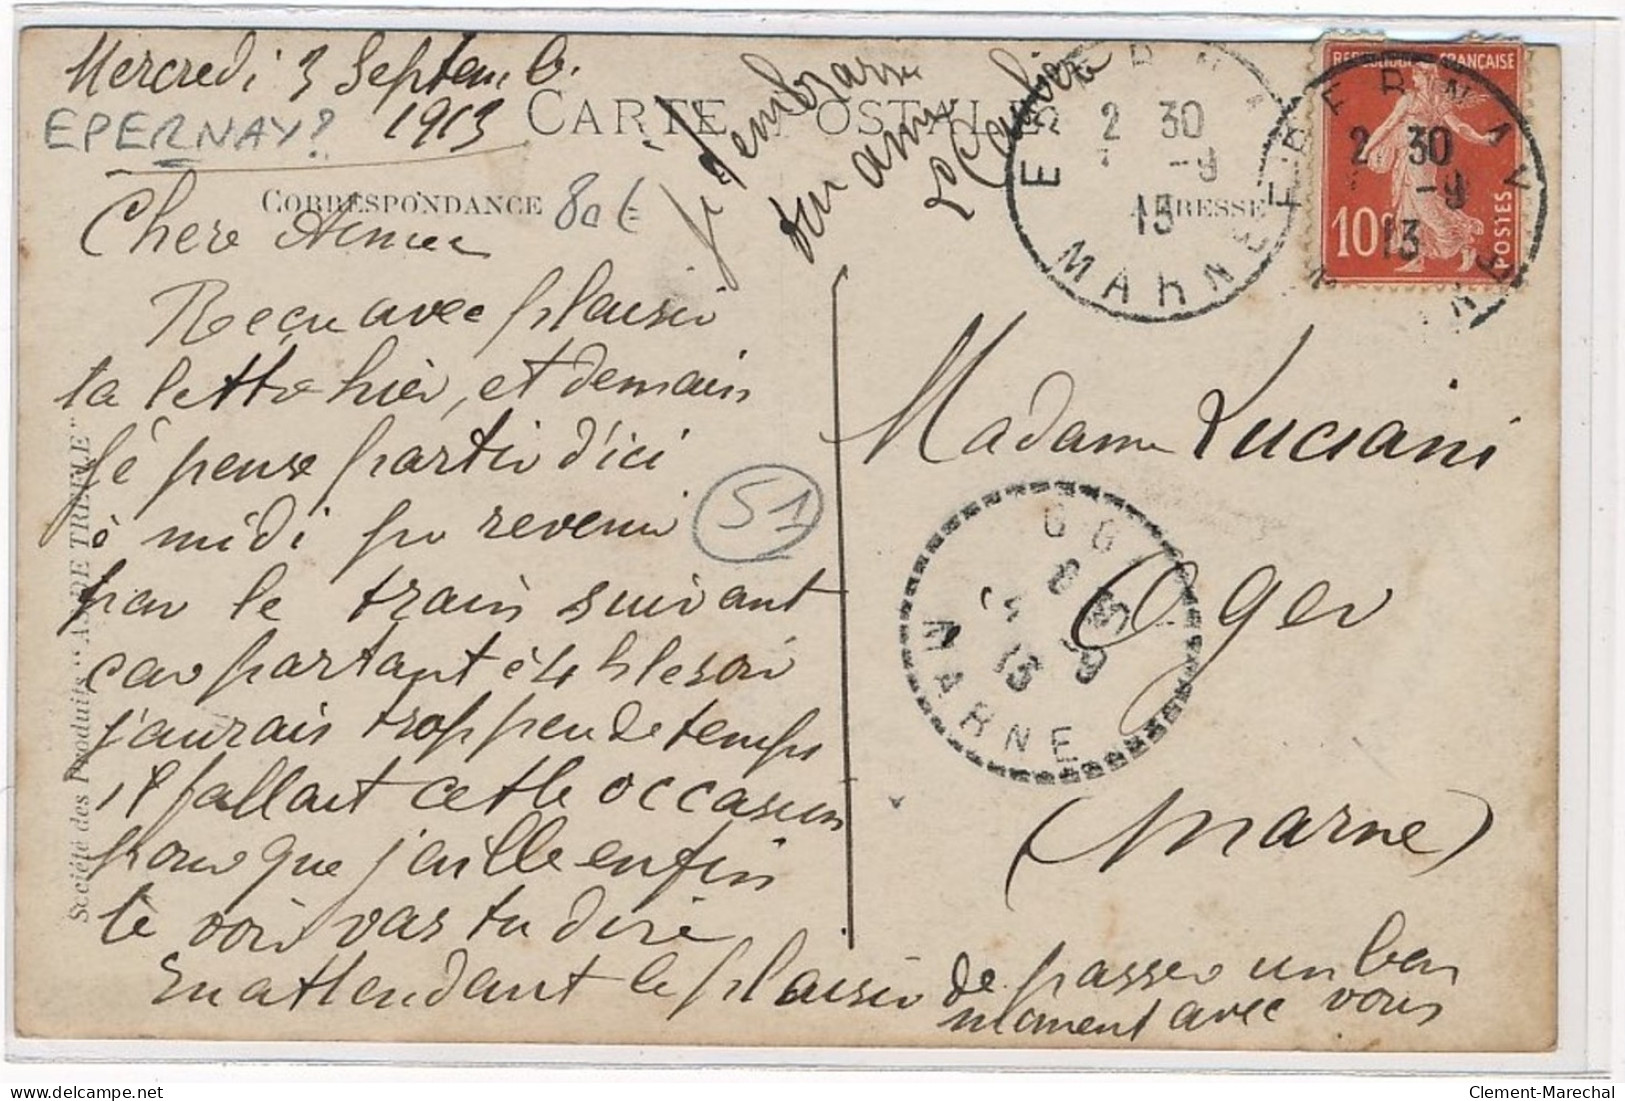 Mercredi 3 Septemb.
1913
EPERNAY?
CARTE POSTALE
CORRESPONDANCE
80 €
ADRESSE
Chère Aimée
Reçu avec plaisir
ta lettre hier, et demain
je pense partir d'ici
à midi pr revenir
par le train suivant
car partant à 4 h le soir
j'aurais trop peu de temps
il fallait cette occasion
pour que j'aille enfin
te voir vas tu dire
En attendant le plaisir de passer un bon
moment avec vous
je t'embrasse
ton amie
51
Société des Produits "AS DE TREFLE"
REPUBLIQUE FRANÇAISE
10c
POSTES
EPERNAY
2 30
3 -9
13
MARNE
EPERNAY
2 30
-9
13
Madame Luciani
Oger
(Marne)
OGER
4 9
13
MARNE
Clement-Marechal